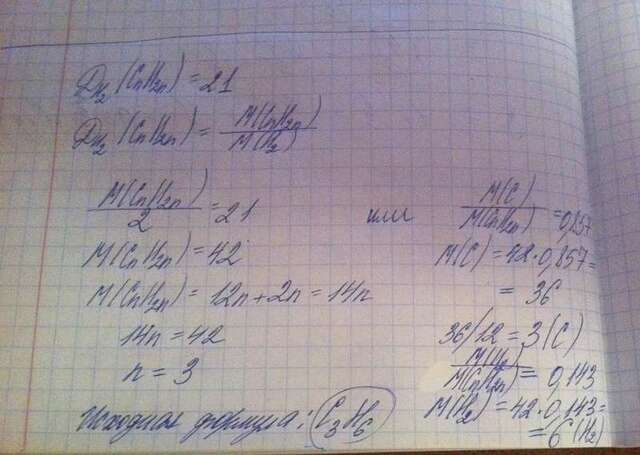 Д_H₂(CnH2n) = 21
Д_H₂(CnH2n) = M(CnH2n)/M(H₂)
M(CnH2n)/2 = 21
M(CnH2n) = 42
M(CnH2n) = 12n+2n = 14n
14n = 42
n = 3
Исходная формула: C₃H₆
или
M(C)/M(CnH2n) = 0,857
M(C) = 42·0,857 =
= 36
36/12 = 3 (C)
M(H₂)/M(CnH2n) = 0,143
M(H₂) = 42·0,143 =
= 6 (H₂)